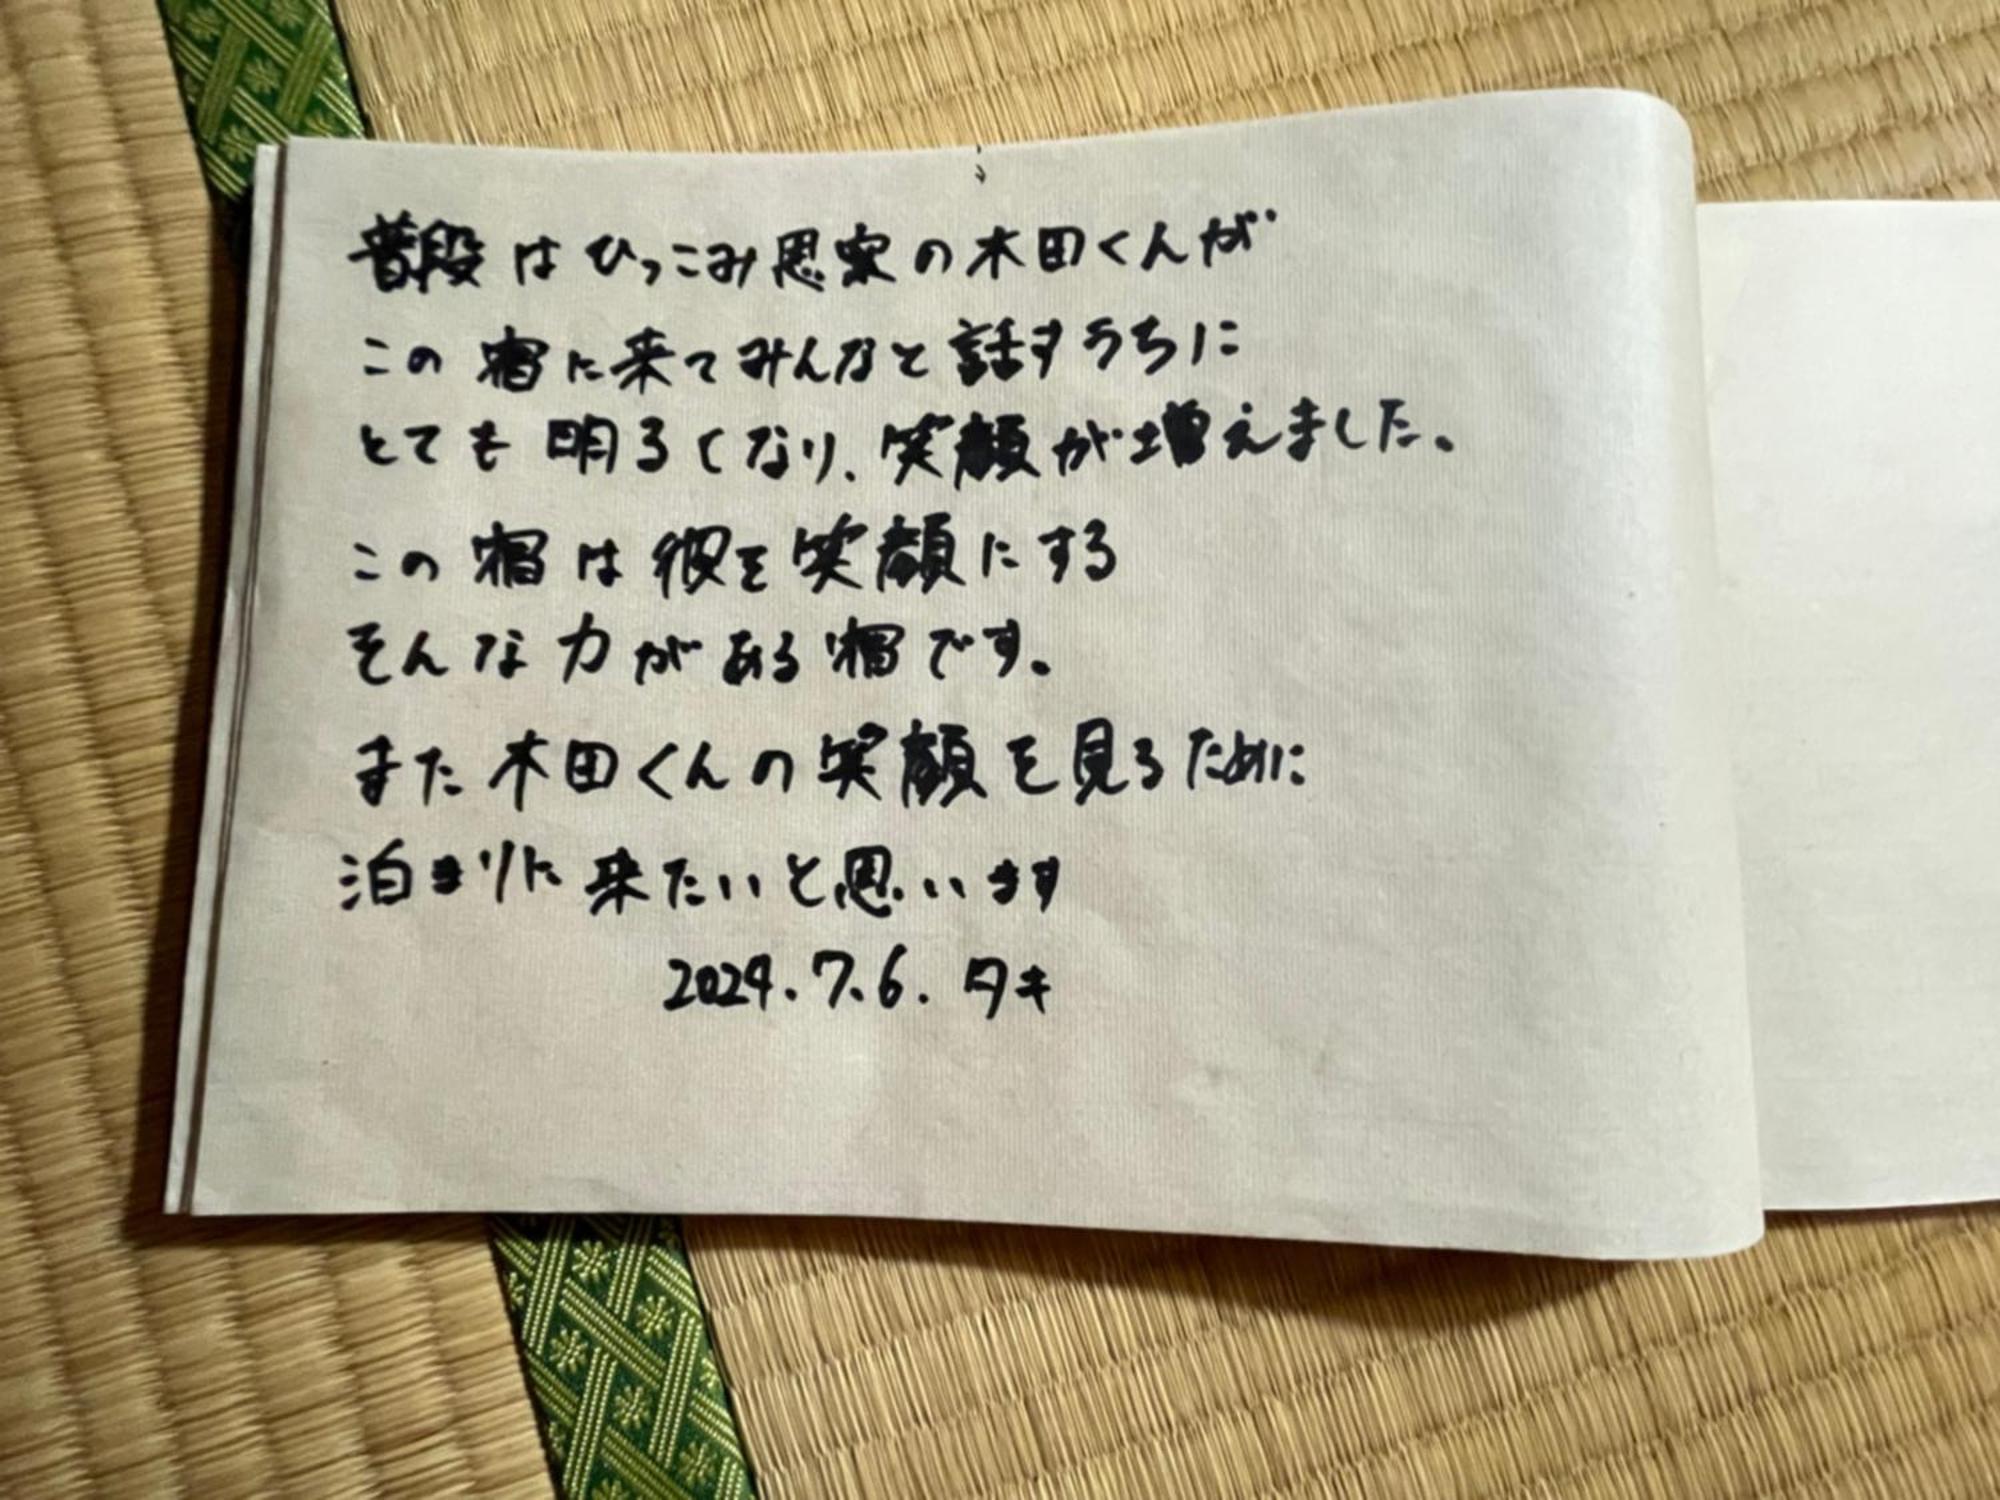 普段はひっこみ思案の木田くんが
この宿に来てみんなと話すうちに
とても明るくなり、笑顔が増えました。
この宿は彼を笑顔にする
そんな力がある宿です。
また木田くんの笑顔を見るために
泊まりに来たいと思います
2024.7.6. タキ